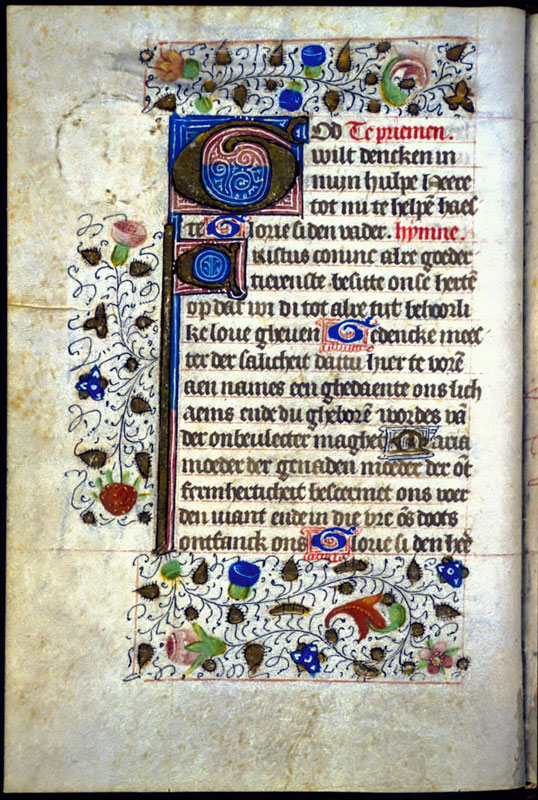 God Te priemen.
wilt dencken in
mijn hulpe Heere
tot mi te helpē haes
te Glorie si den vader. hymne.
Cristus coninc alre goeder
tierenste besitte onse hertē
op dat wi di tot alre tijt behoorli
ke loue gheuen Ghedencke mees
ter der salicheit dattu hier te vorē
aen names een ghedaente ons lich
aems ende du gheborē wordes vā
der onbeulecter maghet Maria
moeder der genaden moeder der ōt
fermherticheit bescermet ons voer
den viant ende in die vre ōs doots
ontfanck ons Glorie si den heē